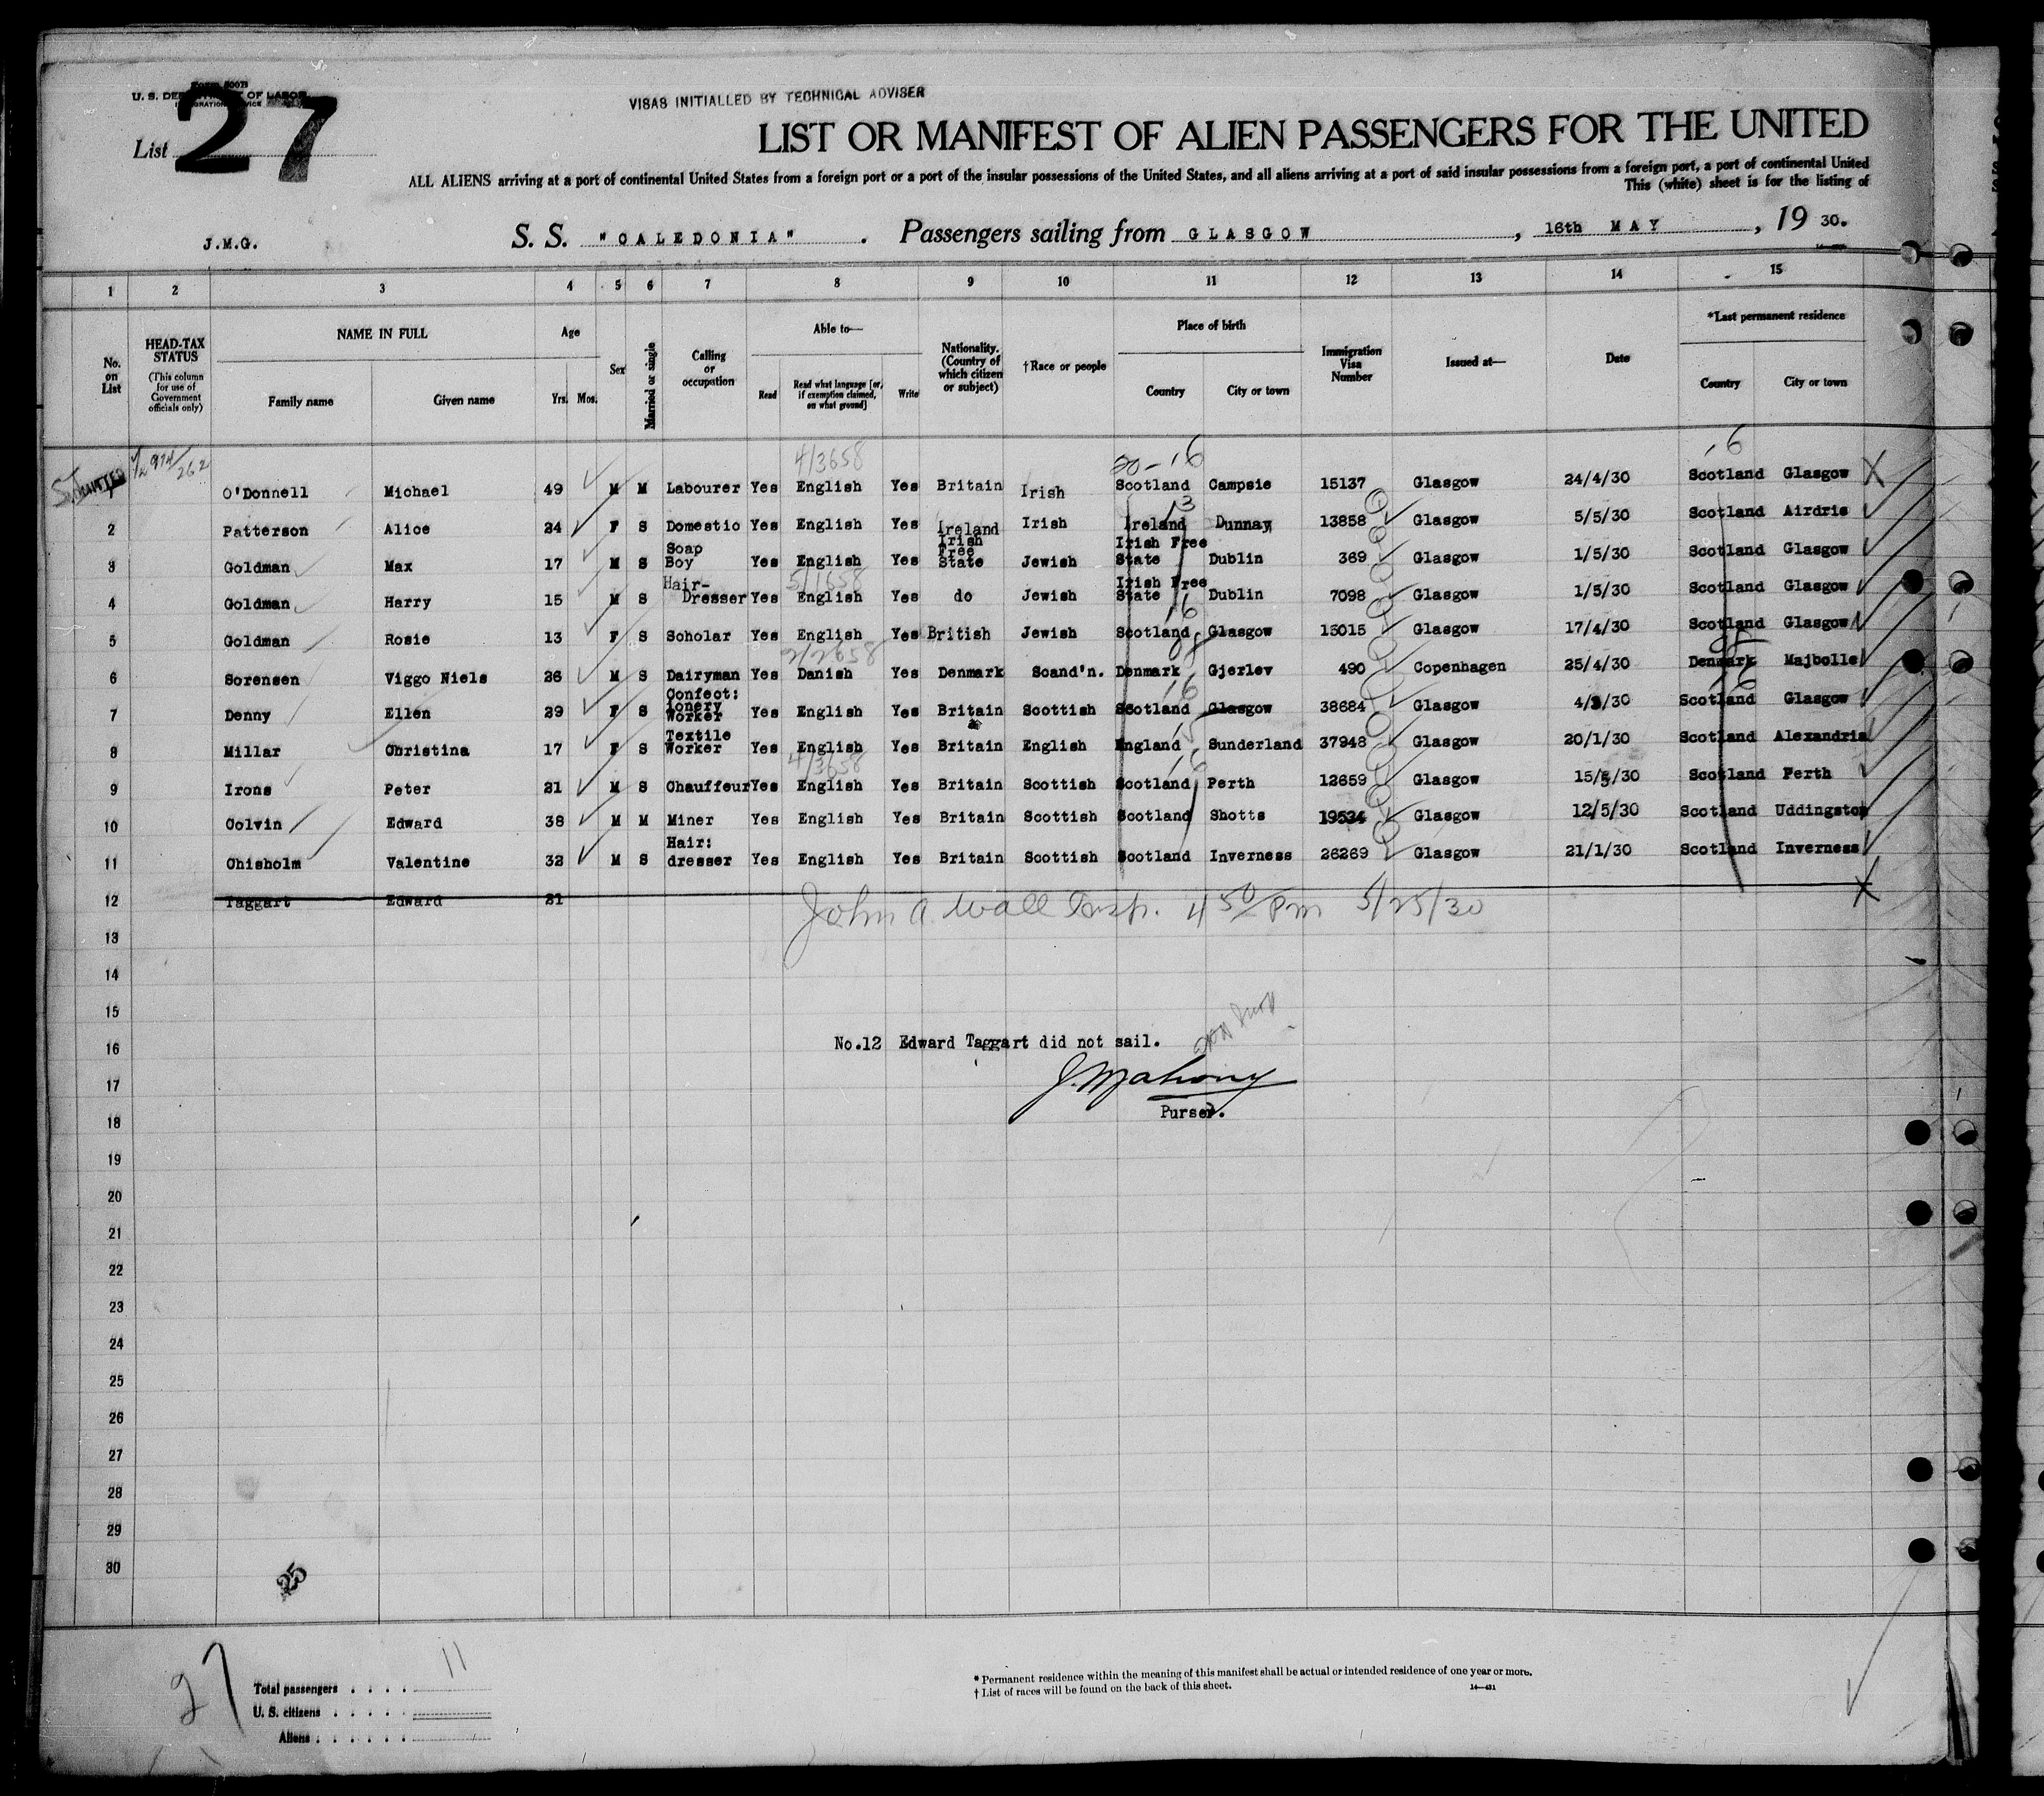 Form 500B
U. S. DEPARTMENT OF LABOR
IMMIGRATION SERVICE
List 27
VISAS INITIALLED BY TECHNICAL ADVISER
LIST OR MANIFEST OF ALIEN PASSENGERS FOR THE UNITED
ALL ALIENS arriving at a port of continental United States from a foreign port or a port of the insular possessions of the United States, and all aliens arriving at a port of said insular possessions from a foreign port, a port of continental United
This (white) sheet is for the listing of
J.M.G. S. S. "CALEDONIA" . Passengers sailing from GLASGOW , 16th MAY , 19 30.
1 2 3 4 5 6 7 8 9 10 11 12 13 14 15
No. on List HEAD-TAX STATUS (This column for use of Government officials only) NAME IN FULL Family name Given name Age Yrs. Mos. Sex Married or single Calling or occupation Able to— Read Read what language [or, if exemption claimed, on what ground] Write Nationality. (Country of which citizen or subject) †Race or people Place of birth Country City or town Immigration Visa Number Issued at— Date *Last permanent residence Country City or town
4/3658 20-16 16
974/262
1 O'Donnell Michael 49 M M Labourer Yes English Yes Britain Irish Scotland Campsie 15137 Glasgow 24/4/30 Scotland Glasgow X
2 Patterson Alice 24 F S Domestic Yes English Yes Ireland Irish Ireland Dunnay 13858 Glasgow 5/5/30 Scotland Airdrie
3 Goldman Max 17 M S Soap Boy Yes English Yes Irish Free State Jewish Irish Free State Dublin 369 Glasgow 1/5/30 Scotland Glasgow
5/1658
4 Goldman Harry 15 M S Hair-Dresser Yes English Yes do Jewish Irish Free State Dublin 7098 Glasgow 1/5/30 Scotland Glasgow
5 Goldman Rosie 13 F S Scholar Yes English Yes British Jewish Scotland Glasgow 15015 Glasgow 17/4/30 Scotland Glasgow
2/2658
6 Sorensen Viggo Niels 26 M S Dairyman Yes Danish Yes Denmark Scand'n. Denmark Gjerlev 490 Copenhagen 25/4/30 Denmark Majbolle
7 Denny Ellen 29 F S Confect: ionery Worker Yes English Yes Britain Scottish Scotland Glasgow 38684 Glasgow 4/3/30 Scotland Glasgow
8 Millar Christina 17 F S Textile Worker Yes English Yes Britain English England Sunderland 37948 Glasgow 20/1/30 Scotland Alexandria
4/3658
9 Irons Peter 21 M S Chauffeur Yes English Yes Britain Scottish Scotland Perth 12659 Glasgow 15/5/30 Scotland Perth
10 Colvin Edward 38 M M Miner Yes English Yes Britain Scottish Scotland Shotts 19534 Glasgow 12/5/30 Scotland Uddingston
11 Chisholm Valentine 32 M S Hair: dresser Yes English Yes Britain Scottish Scotland Inverness 26269 Glasgow 21/1/30 Scotland Inverness
12 Taggart Edward 21 X
John A. Wall Insp. 4 50/ Pm 5/25/30
13
14
15
16 No.12 Edward Taggart did not sail.
17 J. Mahony
18 Purser.
19
20
21
22
23
24
25
26
27
28
29
30
25
27
Total passengers . . . . 11
U. S. citizens . . . . .
Aliens . . . . . .
* Permanent residence within the meaning of this manifest shall be actual or intended residence of one year or more.
† List of races will be found on the back of this sheet.
14—431